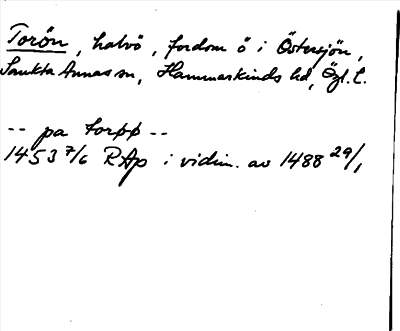 Torön, halvö, fordom ö i Östersjön,
Sankta Annas sn, Hammarkinds hd, Ögl. l.
-- pa torpp --
1453 7/6 RAp i vidim. av 1488 29/1